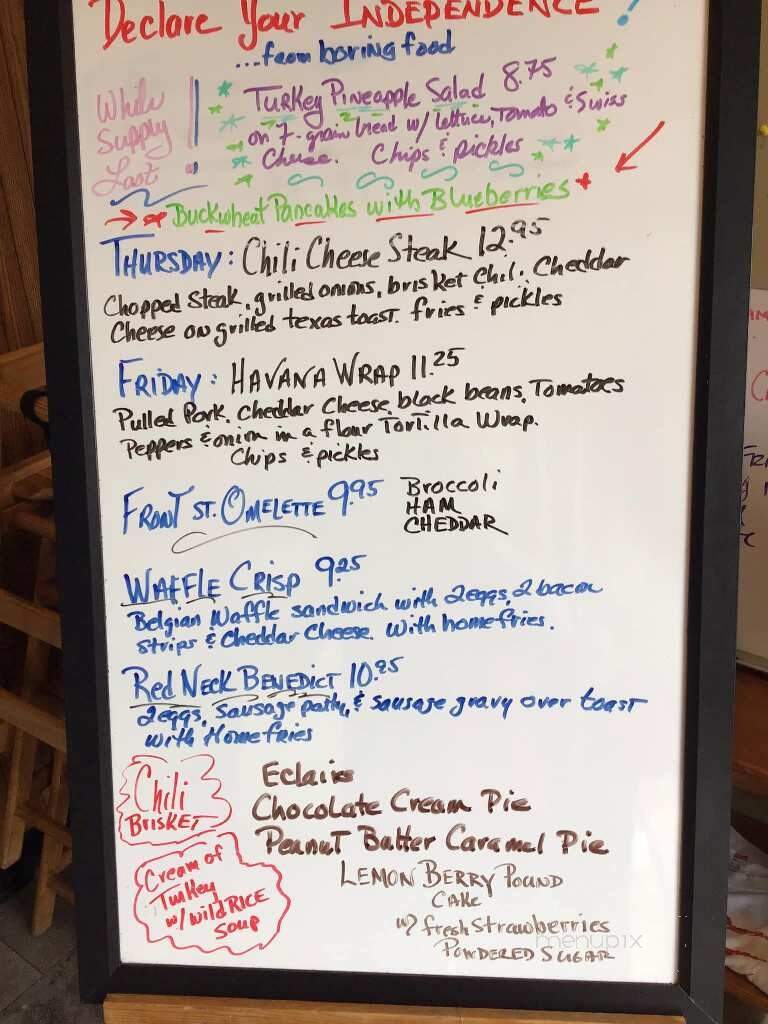 Declare Your INDEPENDENCE!
...from boring food
While
Supply
Last!
Turkey Pineapple Salad 8.75
on 7-grain bread w/ lettuce, Tomato & Swiss
Cheese. Chips & pickles
Buckwheat Pancakes with Blueberries
THURSDAY: Chili Cheese Steak 12.95
Chopped Steak, grilled onions, brisket Chili, Cheddar
Cheese on grilled texas toast. fries & pickles
FRIDAY: HAVANA WRAP 11.25
Pulled Pork, Cheddar Cheese, black beans, Tomatoes
Peppers & onion in a flour Tortilla Wrap.
Chips & pickles
FRONT ST. OMELETTE 9.95
Broccoli
HAM
CHEDDAR
WAFFLE CRISP 9.25
Belgian Waffle sandwich with 2 eggs, 2 bacon
strips & Cheddar Cheese. With homefries.
Red Neck BENEDICT 10.95
2 eggs, Sausage patty, & sausage gravy over toast
with Homefries
Chili
BRISKET
Cream of
Turkey
w/ wild RICE
Soup
Eclairs
Chocolate Cream Pie
Peanut Butter Caramel Pie
LEMON BERRY POUND
CAKE
w/ fresh Strawberries
POWDERED SUGAR
menupix